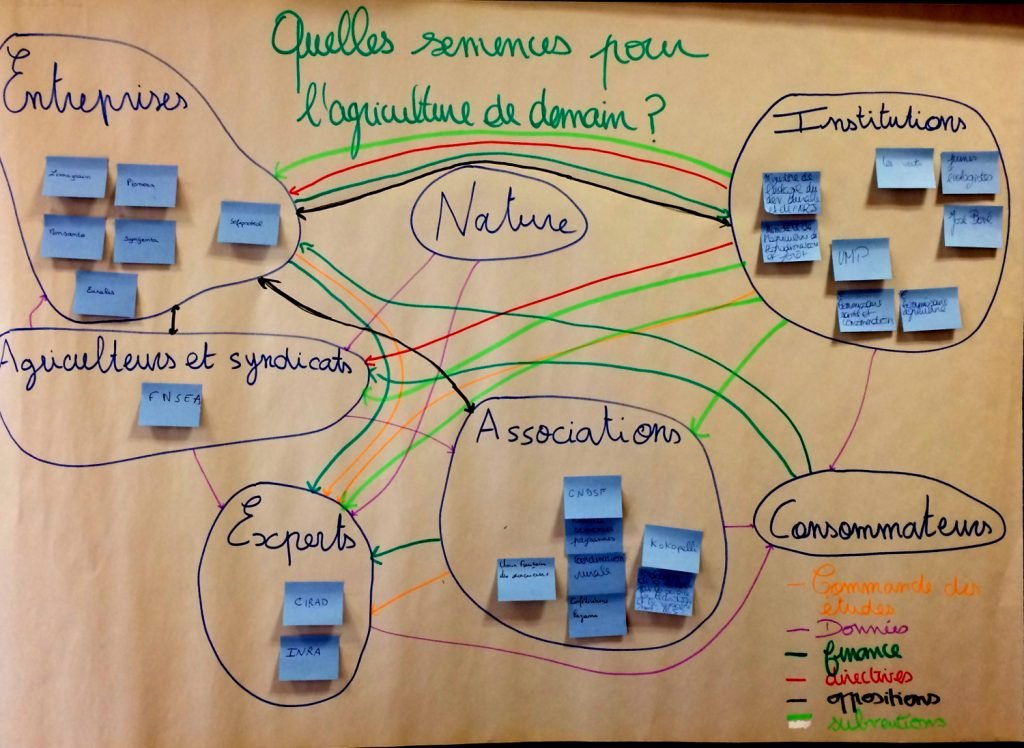 Quelles semences pour
l'agriculture de demain ?
Entreprises
Limagrain
Pioneer
Monsanto
Syngenta
Sofiprotéol
Euralis
Nature
Institutions
Les verts
jeunes
écologistes
Ministère de
l'écologie du
dev durable
et de l'
Ministère de
l'agriculture de
l'agroalimentaire
et forêt
José Bové
UMP
Commissaire
santé et
consommation
Commissaire
agriculture
Agriculteurs et syndicats
FNSEA
Associations
CNDSF
semences
paysannes
Coordination
rurale
Union française
des semenciers
Confédération
Paysanne
Kokopelli
Experts
CIRAD
INRA
Consommateurs
Commande des
études
Données
finance
directives
oppositions
subventions